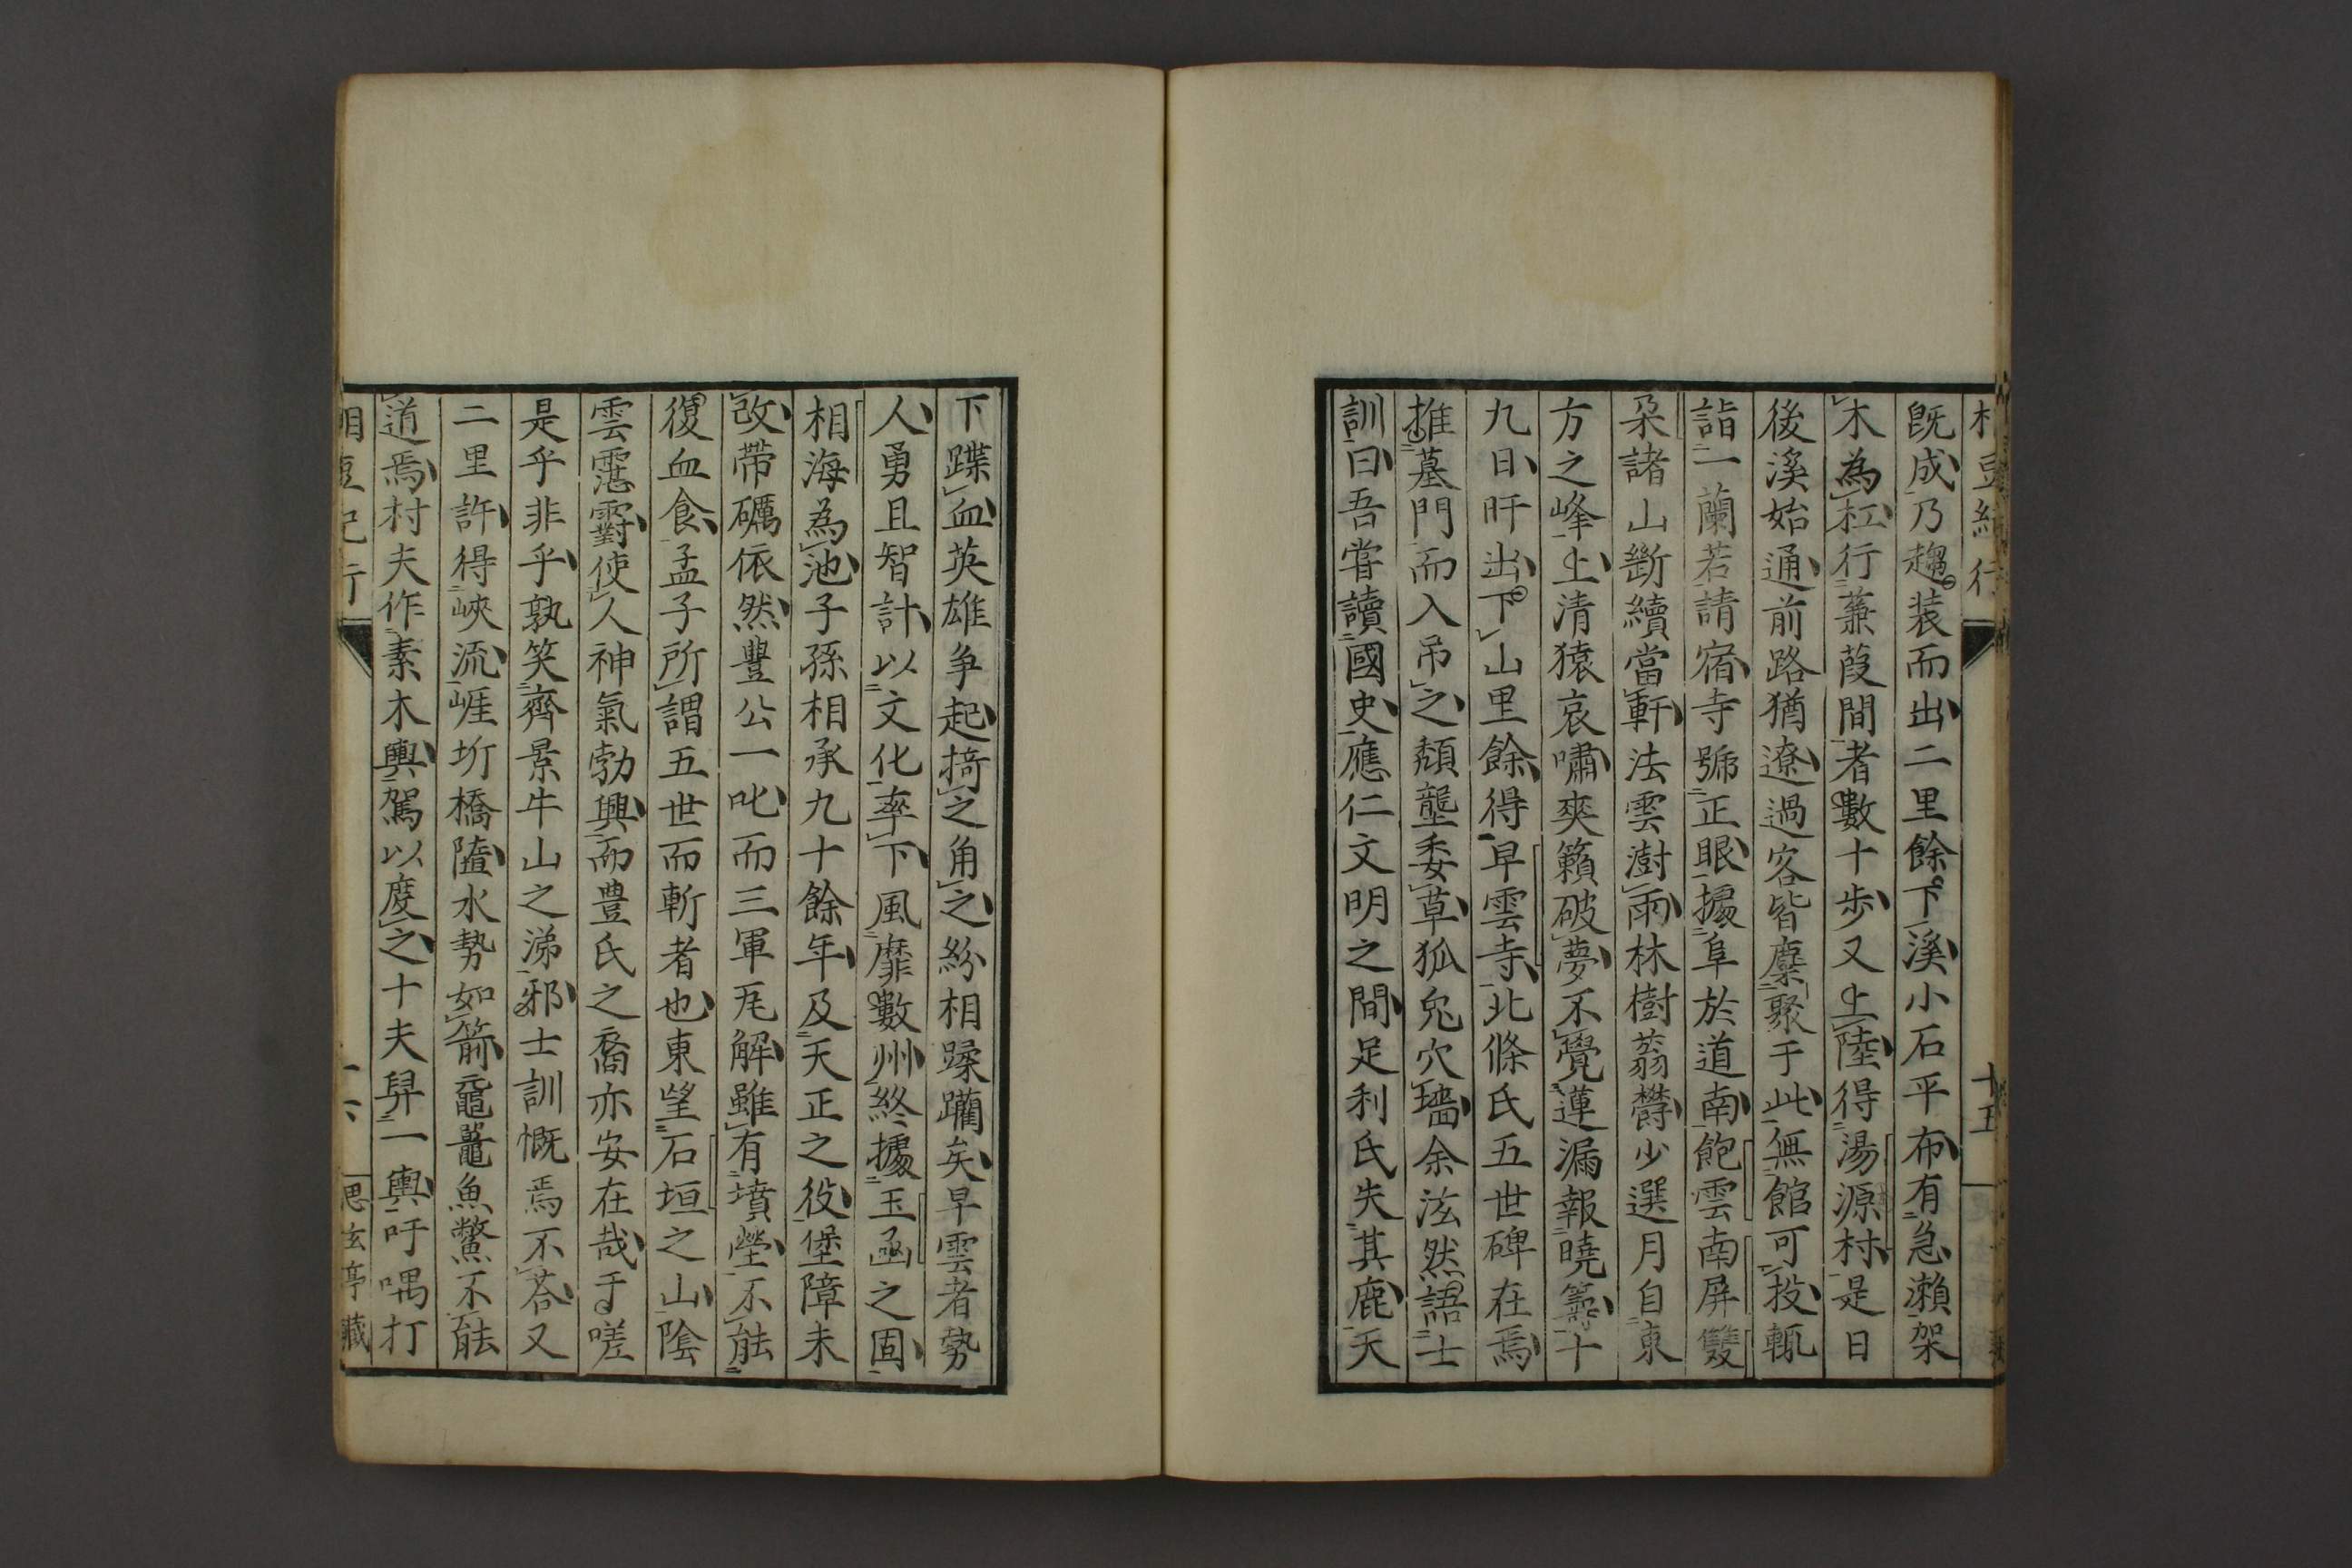 既成乃趨装而出二里餘下溪小石平布有急瀨架
木為杠行蒹葭間者數十歩又上陸得湯源村是日
後溪始通前路猶遼過客皆麇聚于此無館可投輒
詣一蘭若請宿寺號正眼據阜於道南飽雲南屏雙
朶諸山斷續當軒法雲澍雨林樹蓊欝少選月自東
方之峰上清猿哀嘯爽籟破夢不覺蓮漏報曉籌十
九日旰出下山里餘得早雲寺北條氏五世碑在焉
推墓門而入吊之頽壟委草狐兎穴墻余泫然語士
訓曰吾甞讀國史應仁文明之間足利氏失其鹿天
下蹀血英雄争起掎之角之紛相蹂躪矣早雲者勢
人勇且智計以文化率下風靡數州終據玉凾之固
相海為池子孫相承九十餘年及天正之役堡障未
改帶礪依然豐公一叱而三軍瓦解雖有墳塋不能
復血食孟子所謂五世而斬者也東望石垣之山陰
雲霮䨴使人神氣勃興而豊氏之裔亦安在哉于嗟
是乎非乎孰笑齊景牛山之涕邪士訓慨焉不荅又
二里許得峽流崕圻橋隳水勢如箭黿鼉魚鱉不能
道焉村夫作素木輿駕以度之十夫舁一輿吁喁打
相豆紀行
十五
思玄亭藏